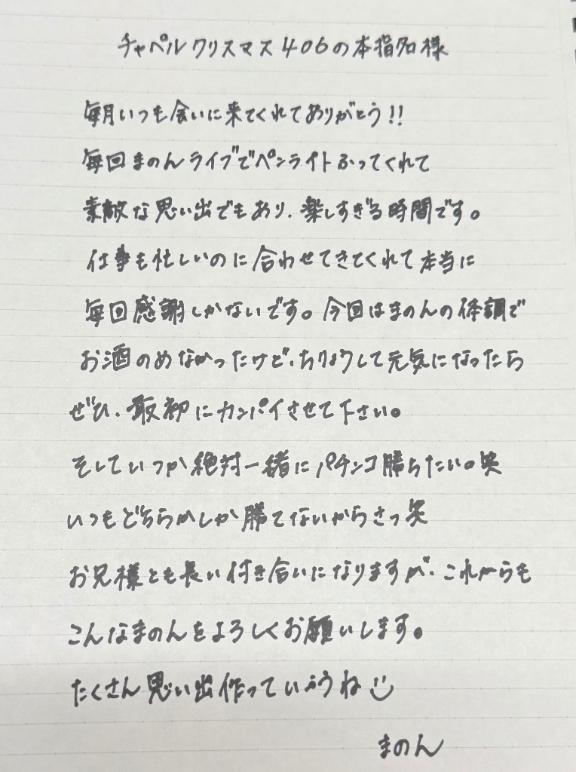 チャペルクリスマス406の本指名様
毎月いつも会いに来てくれてありがとう!!
毎回まのんライブでペンライトふってくれて
素敵な思い出でもあり、楽しすぎる時間です。
仕事も忙しいのに合わせてきてくれて本当に
毎回感謝しかないです。今回はまのんの体調で
お酒のめなかったけど、ちりょうして元気になったら
ぜひ、最初にカンパイさせて下さい。
そしていつか絶対一緒にパチンコ勝ちたい。笑
いつもどちらかしか勝てないからさっ笑
お兄様とも長い付き合いになりますが、これからも
こんなまのんをよろしくお願いします。
たくさん思い出作っていこうね
まのん